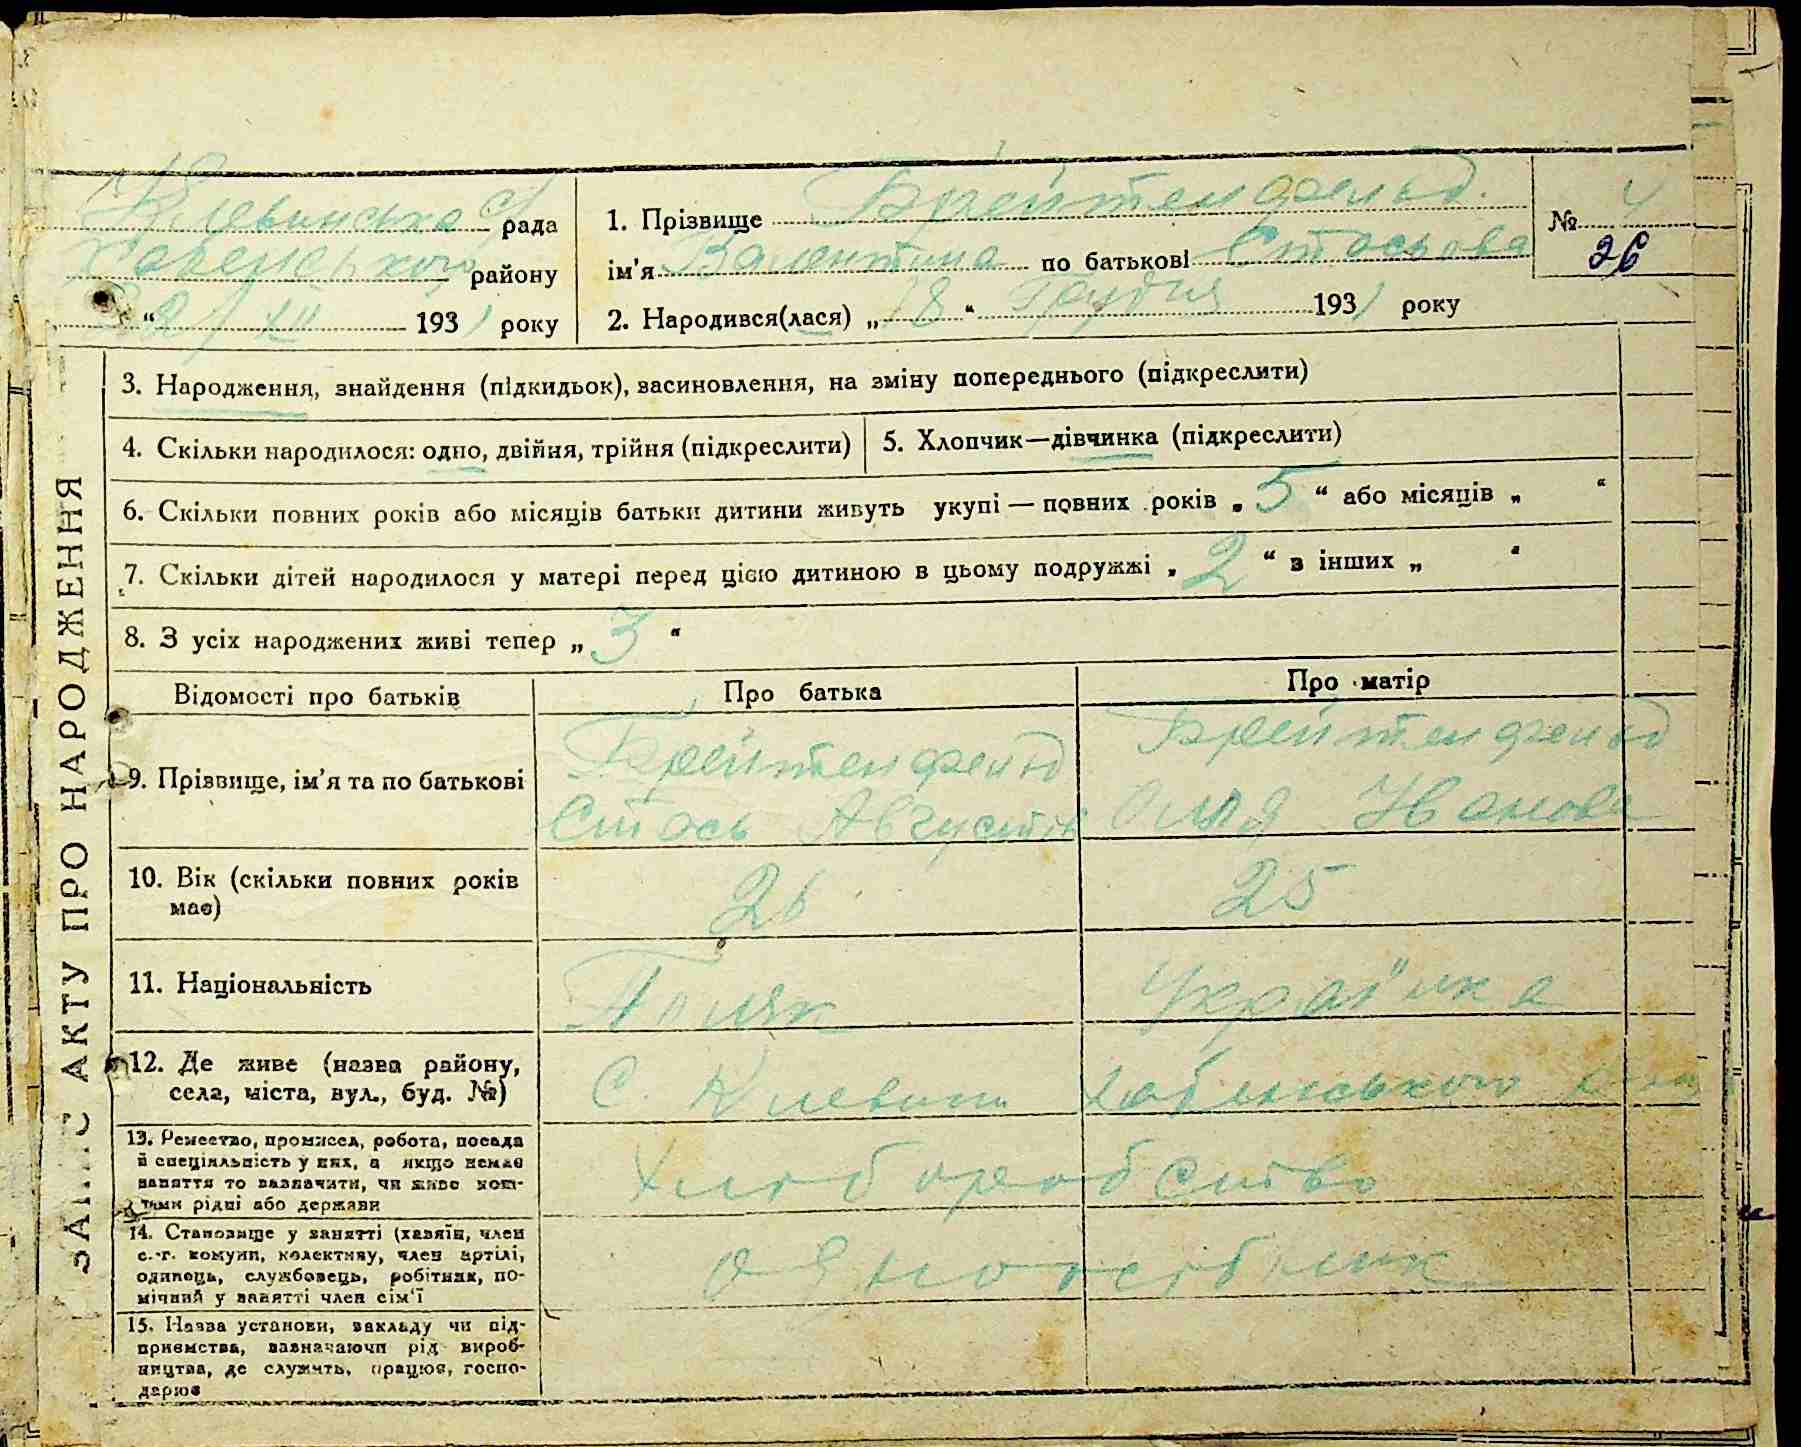 Клевинська с/рада
Хабенського району
" 21/XII 1931 року
1. Прізвище Брейтенфельд.
ім'я Валентина по батькові Стасьова
2. Народився(лася) „18“ Грудня 1931 року
№ 4
26
ЗАПИС АКТУ ПРО НАРОДЖЕННЯ
3. Народження, знайдення (підкидьок), засиновлення, на зміну попереднього (підкреслити)
4. Скільки народилося: одно, двійня, трійня (підкреслити)
5. Хлопчик—дівчинка (підкреслити)
6. Скільки повних років або місяців батьки дитини живуть укупі — повних років „ 5 “ або місяців „ “
7. Скільки дітей народилося у матері перед цією дитиною в цьому подружжі „ 2 “ з інших „ “
8. З усіх народжених живі тепер „ 3 “
Відомості про батьків
Про батька
Про матір
9. Прізвище, ім'я та по батькові
Брейтенфельд
Стась Августів
Брейтенфельд
Оля Іванова
10. Вік (скільки повних років
має)
26
25
11. Національність
Поляк
Українка
12. Де живе (назва району,
села, міста, вул., буд. №)
С. Клевини Хабенського
13. Ремество, промисел, робота, посада
й спеціяльність у них, а якщо немає
заняття то зазначити, чи живе кош-
тами рідні або держави
Хлоборобство
14. Становище у занятті (хазяїн, член
с.-г. комуни, колективу, член артілі,
одинець, службовець, робітник, по-
мічний у занятті член сім'ї
одноосібник
15. Назва установи, закладу чи під-
приємства, зазначаючи рід вироб-
ництва, де служить, працює, госпо-
дарює